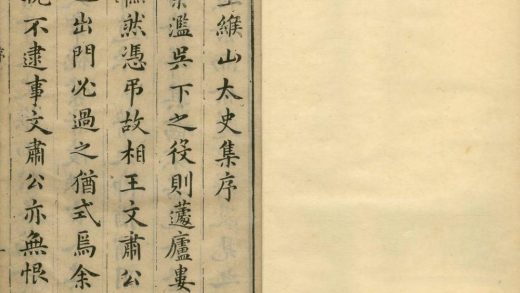 王緱山太史集序
濫吳下之役則蘧廬婁
然憑吊故相王文肅公
出門必過之猶式焉余
不逮事文肅公亦無恨
序